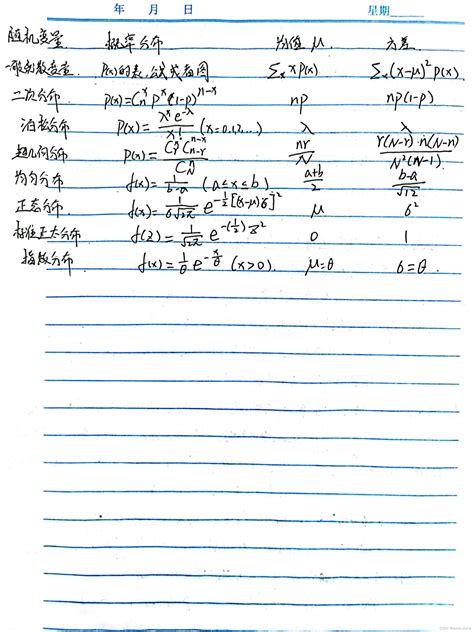 年 月 日 星期
随机变量 概率分布 均值 μ 方差
一般离散变量 P(x)的表、公式或者图 Σₓ xP(x) Σₓ(x-μ)²P(x)
二次分布 P(x)=Cₙˣ Pˣ(1-p)ⁿ⁻ˣ np np(1-p)
泊松分布 P(x)= λˣe^-λ / x! (x=0,1,2,...) λ λ
超几何分布 P(x)= Cᵣˣ C_{N-r}^{n-x} / C_N^n nr/N r(N-r)·n(N-n) / N²(N-1)
均匀分布 f(x)= 1/(b-a) (a≤x≤b) (a+b)/2 (b-a)/√12
正态分布 f(x)= 1/(6√2π) e^{-½[(x-μ)/6]²} μ 6²
标准正太分布 f(z)= 1/√2π e^{-(½)z²} 0 1
指数分布 f(x)= 1/θ e^{-x/θ} (x>0). μ=θ 6=θ.